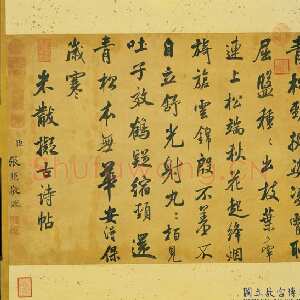 青松勁挺姿凌霄恥
屈盤種〻出枝葉牽
連上松端秋花起絳烟
旖旎雲錦殷不羞不
自立舒光射丸〻柏見
吐子效鶴疑縮頸還
青松本無華安得保
歲寒
米黻擬古詩帖
臣張照敬臨
國立故宮博